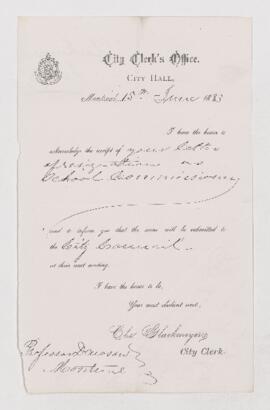 City Clerk's Office,
CITY HALL,
Montreal 15th June 1883
I have the honor to
acknowledge the receipt of your letter
of resignation as
School Commissioner,
and to inform you that the same will be submitted to
the City Council.
at their next meeting.
I have the honor to be,
Your most obedient servt.,
Chs Glackmeyer
City Clerk.
Professor Dawson
Montreal